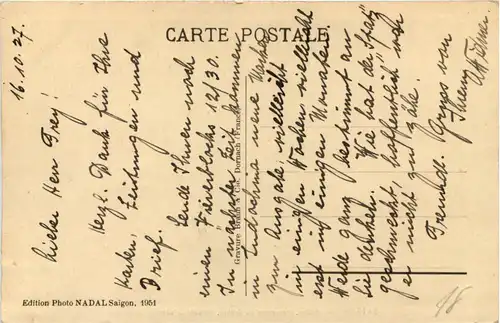 CARTE POSTALE
16.10.27.
Lieber Herr Frey!
Herzl. Dank für Ihre
Karten, Zeitungen und
Brief.
Sende Ihnen noch
einen Viererblocks 12/30.
In nächster Zeit kommen
in Indochina neue Marken
zur Ausgabe, vielleicht
in einigen Wochen vielleicht
erst in einigen Monaten.
Werde ganz bestimmt an
Sie denken. Wie hat der Spatz
geschmeckt, hoffentlich war
er nicht zu zähe.
Freundl. Gruss von
Ihrem
Gravure Braun & Cie, Dornach (France)
Edition Photo NADAL Saigon, 1951